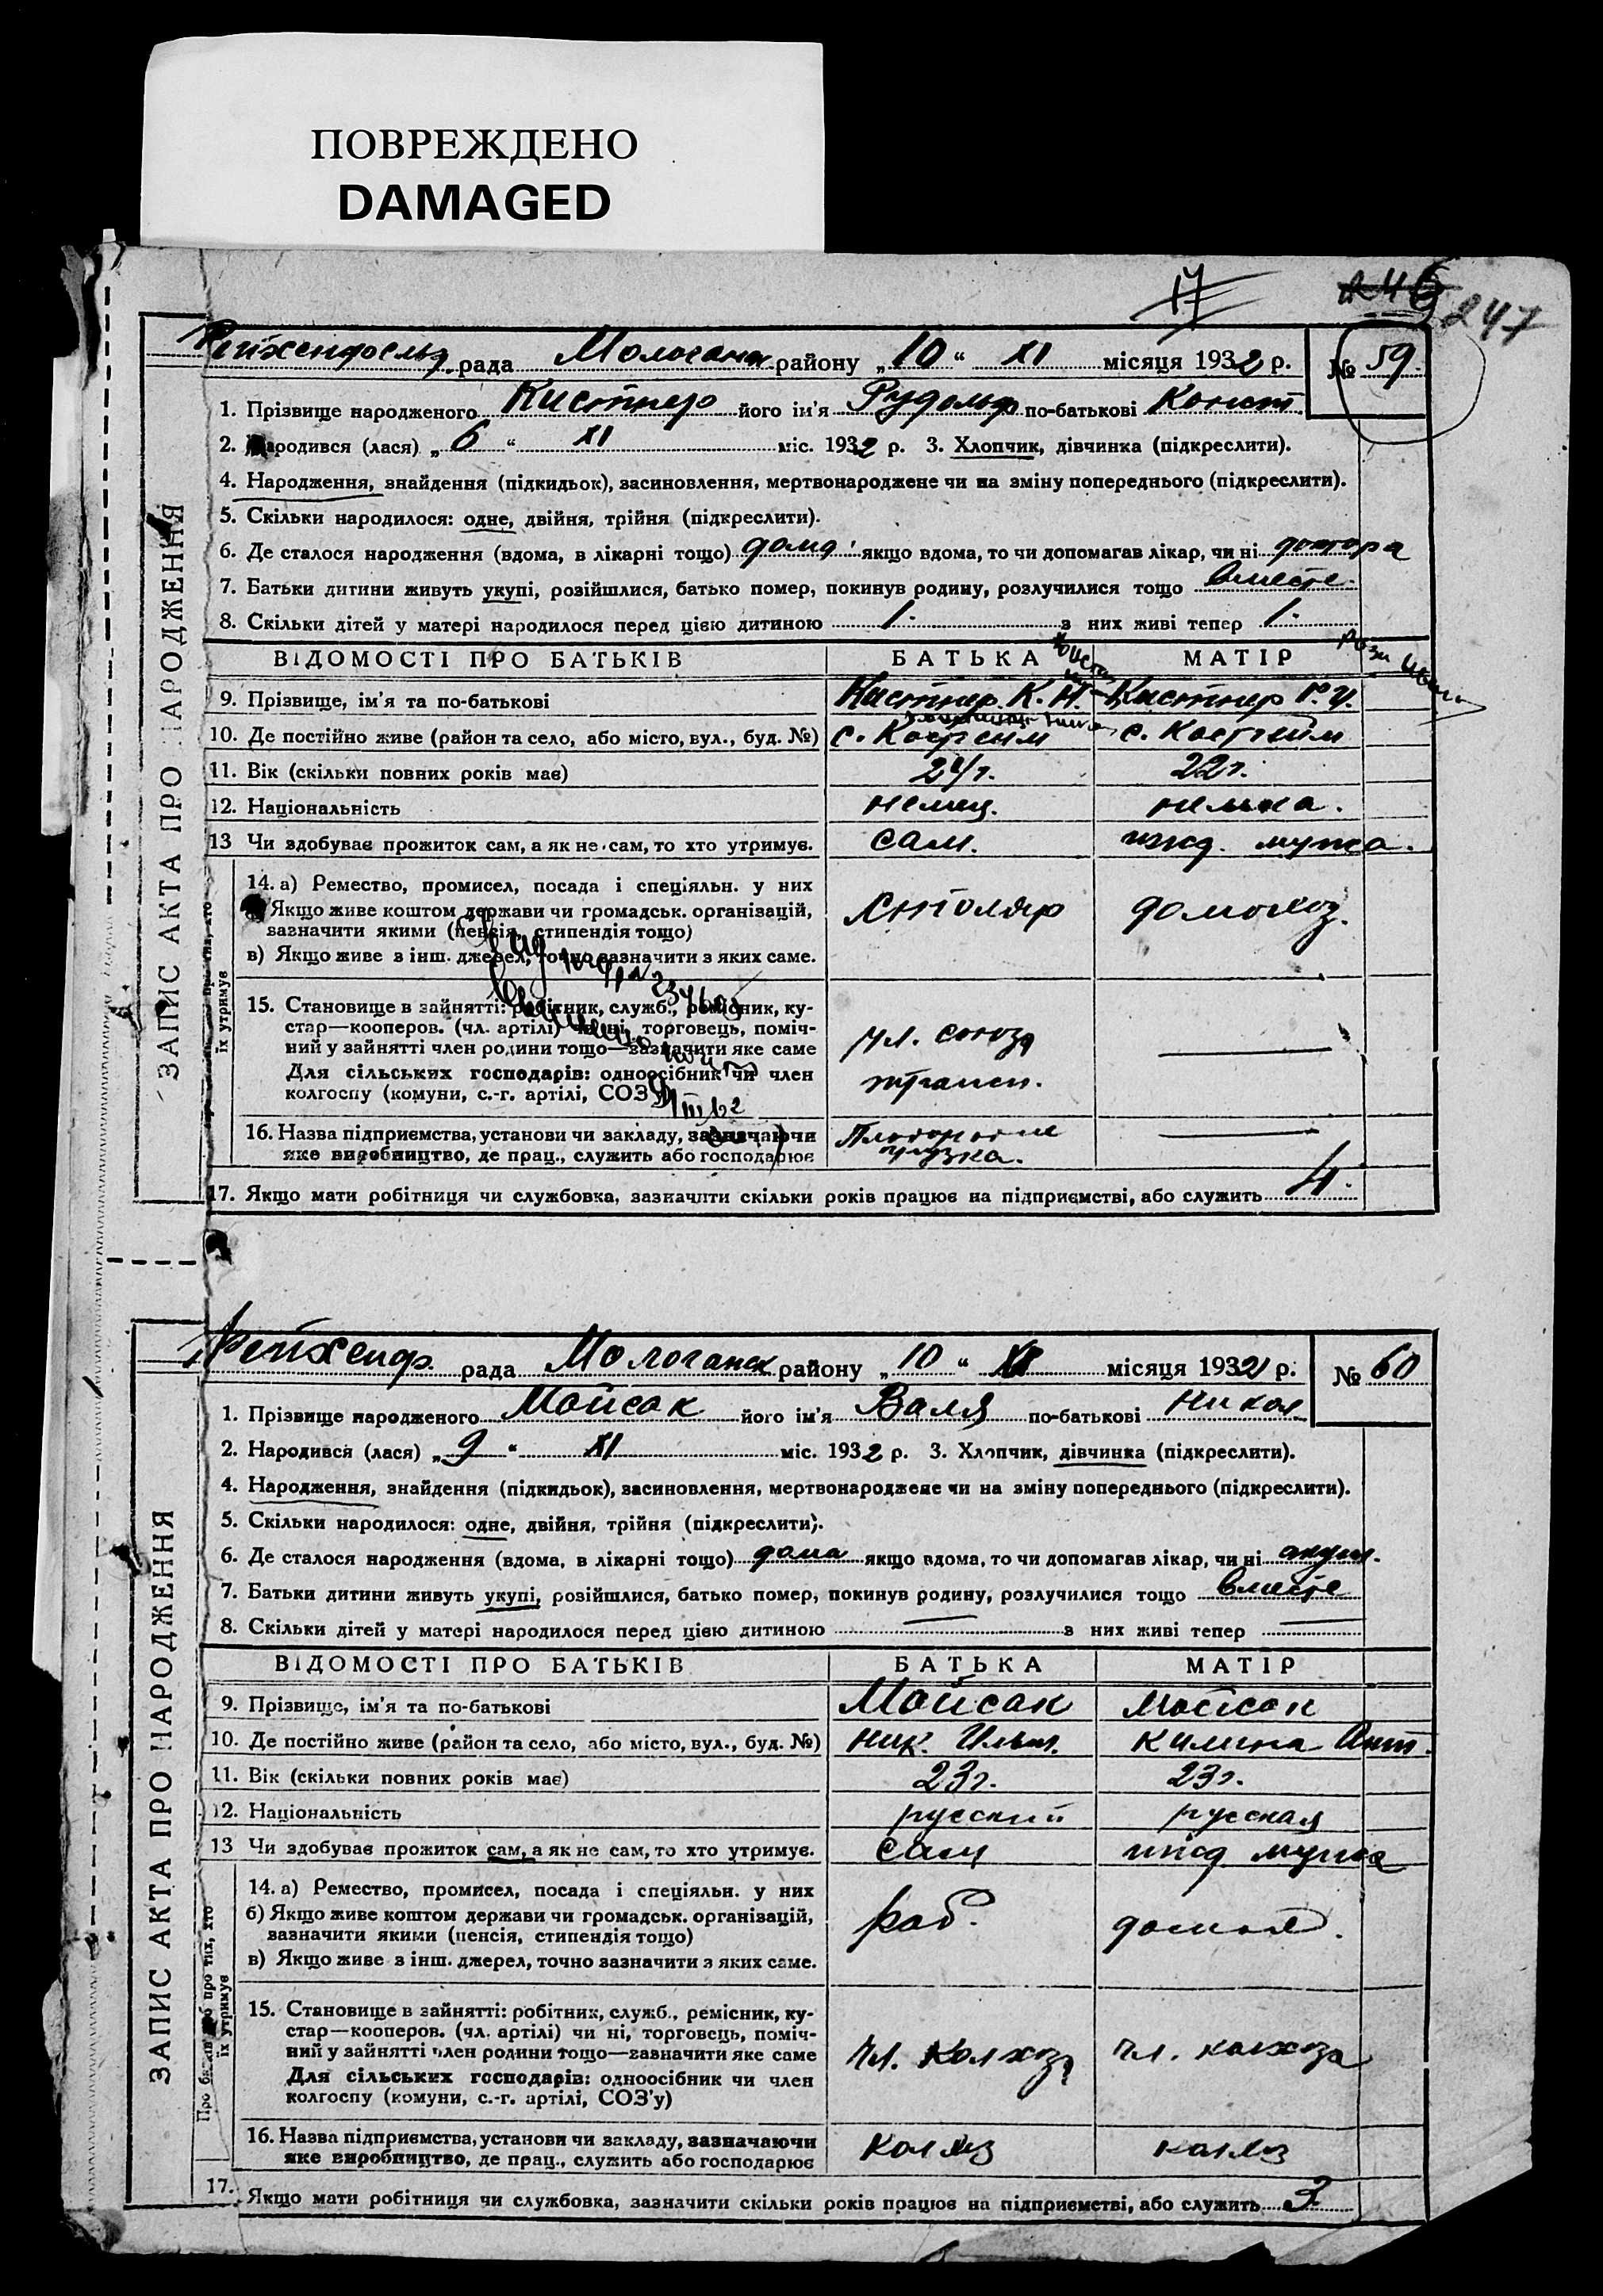 ПОВРЕЖДЕНО
DAMAGED
17
246 247
Рейхенфельд рада Молочанск району „10“ XI місяця 1932 р. № 59
1. Прізвище народженого Кистнер його ім'я Рудольф по-батькові Конст.
2. Народився (лася) „6“ XI міс. 1932 р. 3. Хлопчик, дівчинка (підкреслити).
4. Народження, знайдення (підкидьок), засиновлення, мертвонароджене чи на зміну попереднього (підкреслити).
5. Скільки народилося: одне, двійня, трійня (підкреслити).
6. Де сталося народження (вдома, в лікарні тощо) дома якщо вдома, то чи допомагав лікар, чи ні доктора
7. Батьки дитини живуть укупі, розійшлися, батько помер, покинув родину, розлучилися тощо вместе.
8. Скільки дітей у матері народилося перед цією дитиною 1. з них живі тепер 1.
ВІДОМОСТІ ПРО БАТЬКІВ БАТЬКА МАТІР
9. Прізвище, ім'я та по-батькові Кистнер К. И. Кистнер Р. И.
10. Де постійно живе (район та село, або місто, вул., буд. №) с. Костгейм с. Костгейм
11. Вік (скільки повних років має) 24 г. 22 г.
12. Національність немец. немка.
13 Чи здобуває прожиток сам, а як не сам, то хто утримує. сам. ижд. мужа.
14. а) Ремество, промисел, посада і спеціяльн. у них
Якщо живе коштом держави чи громадськ. організацій,
зазначити якими (пенсія, стипендія тощо) столяр домохоз.
в) Якщо живе з інш. джерел, точно зазначити з яких саме.
15. Становище в зайнятті: робітник, служб., ремісник, ку-
стар—кооперов. (чл. артілі) чи ні, торговець, поміч-
ний у зайнятті член родини тощо—зазначити яке саме чл. союза
Для сільських господарів: одноосібник чи член
колгоспу (комуни, с.-г. артілі, СОЗ'у)
16. Назва підприємства, установи чи закладу, зазначаючи
яке виробництво, де прац., служить або господарює
17. Якщо мати робітниця чи службовка, зазначити скільки років працює на підприємстві, або служить 4.
ЗАПИС АКТА ПРО НАРОДЖЕННЯ
їх утримує
Рейхенф. рада Молочанск району „10“ XI місяця 1932 р. № 60
1. Прізвище народженого Мойсак його ім'я Валя по-батькові Никол
2. Народився (лася) „9“ XI міс. 1932 р. 3. Хлопчик, дівчинка (підкреслити).
4. Народження, знайдення (підкидьок), засиновлення, мертвонароджене чи на зміну попереднього (підкреслити).
5. Скільки народилося: одне, двійня, трійня (підкреслити).
6. Де сталося народження (вдома, в лікарні тощо) дома якщо вдома, то чи допомагав лікар, чи ні акуш.
7. Батьки дитини живуть укупі, розійшлися, батько помер, покинув родину, розлучилися тощо вместе
8. Скільки дітей у матері народилося перед цією дитиною — з них живі тепер —
ВІДОМОСТІ ПРО БАТЬКІВ БАТЬКА МАТІР
9. Прізвище, ім'я та по-батькові Мойсак Мойсак
10. Де постійно живе (район та село, або місто, вул., буд. №) Ник. Ильич. Килина Ант.
11. Вік (скільки повних років має) 23 г. 23 г.
12. Національність русский русская
13 Чи здобуває прожиток сам, а як не сам, то хто утримує. сам ижд. мужа
14. а) Ремество, промисел, посада і спеціяльн. у них
б) Якщо живе коштом держави чи громадськ. організацій,
зазначити якими (пенсія, стипендія тощо) раб.
в) Якщо живе з інш. джерел, точно зазначити з яких саме.
15. Становище в зайнятті: робітник, служб., ремісник, ку-
стар—кооперов. (чл. артілі) чи ні, торговець, поміч-
ний у зайнятті член родини тощо—зазначити яке саме чл. колхоза чл. колхоза
Для сільських господарів: одноосібник чи член
колгоспу (комуни, с.-г. артілі, СОЗ'у)
16. Назва підприємства, установи чи закладу, зазначаючи
яке виробництво, де прац., служить або господарює колхоз колхоз
17. Якщо мати робітниця чи службовка, зазначити скільки років працює на підприємстві, або служить 3.
ЗАПИС АКТА ПРО НАРОДЖЕННЯ
про тих, хто
їх утримує